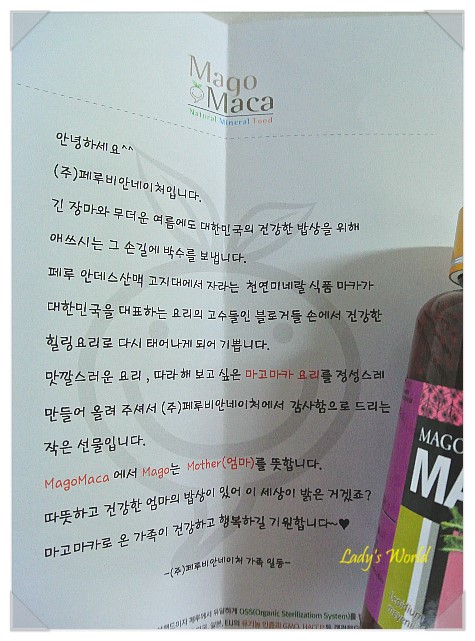 Mago
Maca
Natural Mineral Food
안녕하세요^^
(주)페루비안네이처입니다.
긴 장마와 무더운 여름에도 대한민국의 건강한 밥상을 위해
애쓰시는 그 손길에 박수를 보냅니다.
페루 안데스산맥 고지대에서 자라는 천연미네랄 식품 마카가
대한민국을 대표하는 요리의 고수들인 블로거들 손에서 건강한
힐링요리로 다시 태어나게 되어 기쁩니다.
맛깔스러운 요리 , 따라해 보고 싶은 마고마카 요리를 정성스레
만들어 올려 주셔서 (주)페루비안네이처에서 감사함으로 드리는
작은 선물입니다.
MagoMaca 에서 Mago는 Mother(엄마)를 뜻합니다.
따뜻하고 건강한 엄마의 밥상이 있어 이 세상이 밝은 거겠죠?
마고마카로 온 가족이 건강하고 행복하길 기원합니다~♥
-(주)페루비안네이처 가족 일동-
페루에서 유일하게 OSS(Organic Sterilization System)를
MAGO
MA
Lady's World